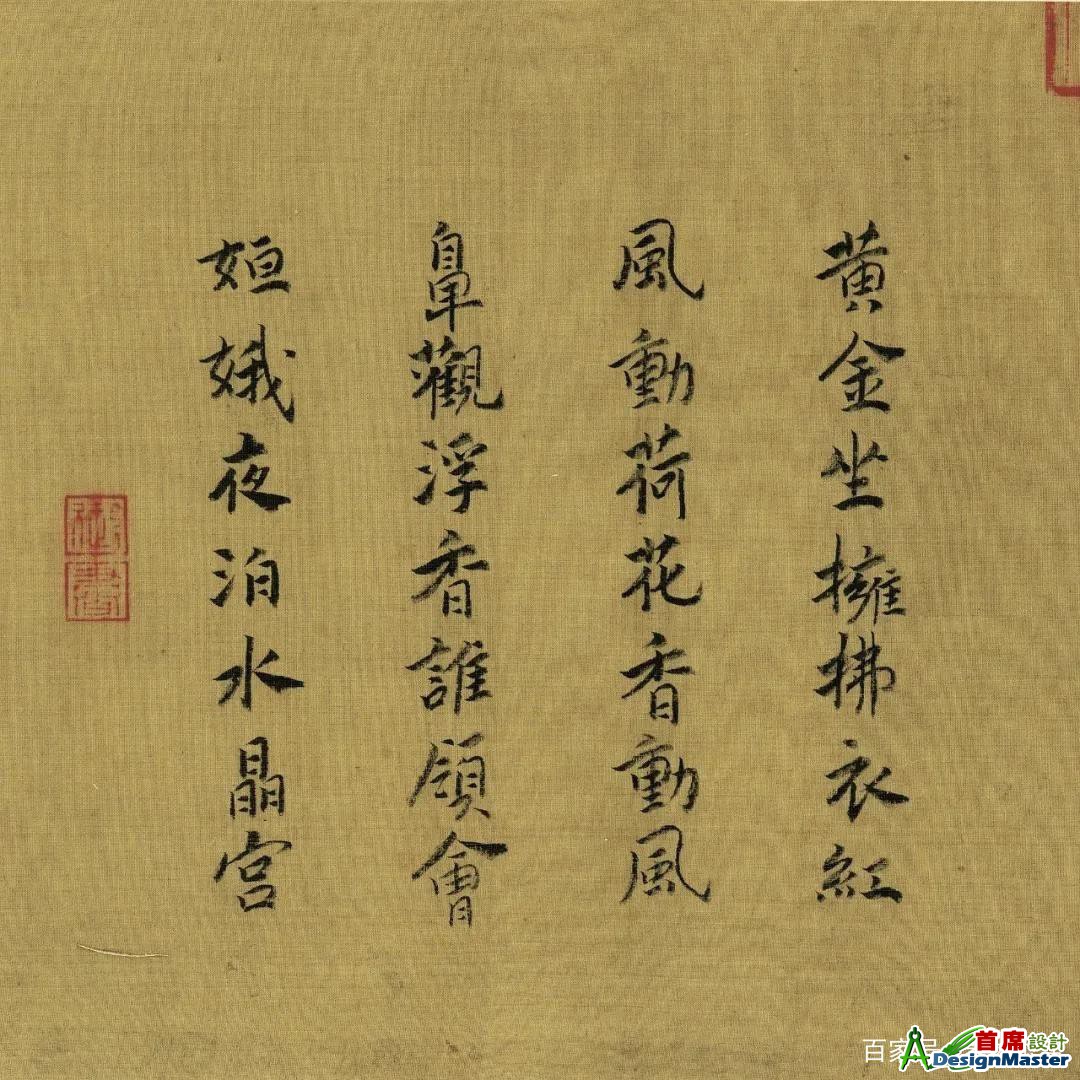 黄金坐擁拂衣紅
風動荷花香動風
鼻觀浮香誰領會
姮娥夜泊水晶宮
百家号
首席設計
DesignMaster